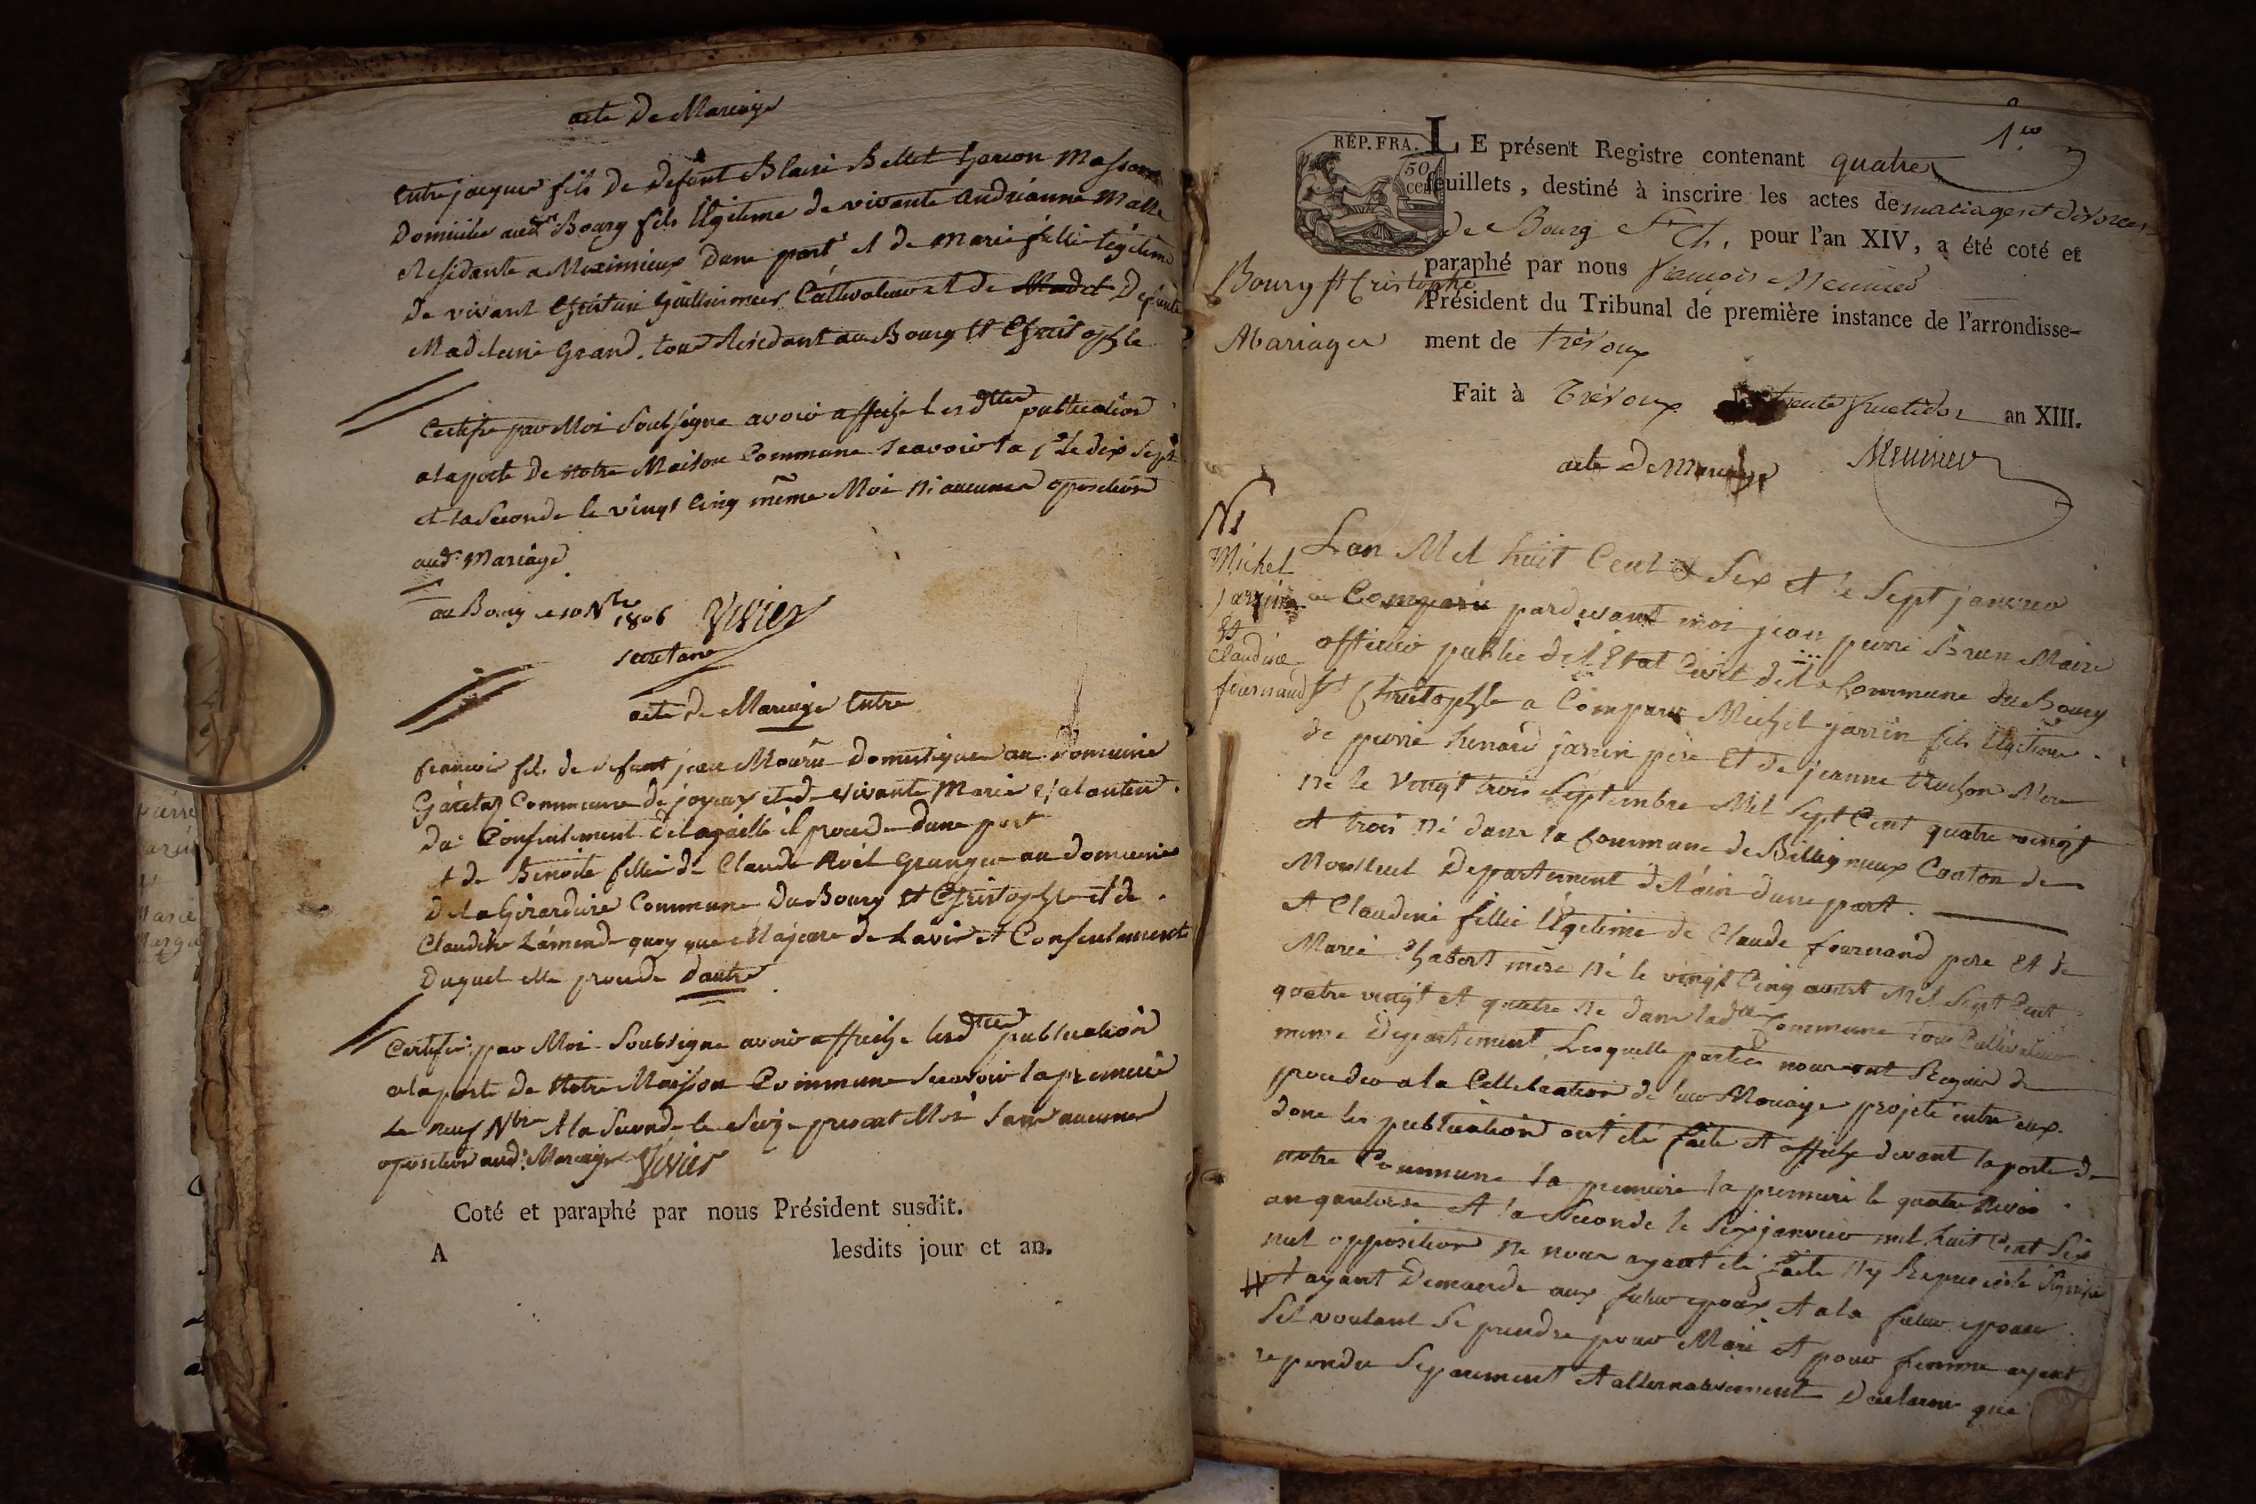 acte De Mariage
Entre jacques fils De defunt Blaise Bellet Garcon Masson
Domicilié aud. Bourg fils legitime de vivante Andrianne Malle
Residante a Meximieux Dune part et de Marie fille legitime
De vivant Christin Guillermier Cultivateur et de Defunte
Madelaine Grand, tous Residant au Bourg St Christophle
Certifie par Moi Soubsigné avoir affiché lesdttes publication
a la porte de Notre Maison Commune scavoir la 1re le dix sept
et la seconde le vingt cinq même Moi Ni aucunes oposition
aud. Mariage
au Bourg ce 10 Nbre 1806 Vivier
secretaire
acte de Mariage Entre
francois fils de defunt jean Mouru Domestique au Domaine
Commune de joyeux et de vivante Marie
Du Consentement de laqaelle il procede dune part
et de Benoite fille de Claude Granger au domaine
De la Girardiere Commune Du Bourg St Christophle et de
Claudine quoy que Majeure de Lavis et Consentement
Duquel elle procede Dautre
Certifie par Moi Soubsigne avoir affiché lesdttes publication
a la porte de Notre Maison Commune Scavoir la premiere
Le neuf Nbre et la Seconde le Seize present Moi Sans aucunes
oposition aud. Mariage Vivier
Coté et paraphé par nous Président susdit.
A lesdits jour et an.
1er
RÉP. FRA.
50 cen
LE présent Registre contenant quatre
feuillets, destiné à inscrire les actes de mariages et divorces
de Bourg St Ch. pour l'an XIV, a été coté et
paraphé par nous françois Meunier
Bourg St Cristophe
Président du Tribunal de première instance de l'arrondisse-
Mariages
ment de trévoux
Fait à Trévoux le trente fructidor an XIII.
acte De Mariage Meunier
N1
Michel
jarrin
Et
Claudine
fournand
Lan Mil huit Cent Six et le Sept janvier
a Comparu pardevant moi jean pierre Brun Maire
officier public de l'Etat Civil de la Commune du Bourg
St Christophle a Comparu Michel jarrin fils legitime
de pierre henard jarrin père Et de jeanne Mere
Né le Vingt trois Septembre Mil Sept Cent quatre vingt
et trois Né dans la Commune de Billigneux Canton de
Montluel Departement de l'ain dune part.
et Claudine fillie legitime de Claude fournand pere et de
Marie Chabert mère Né le vingt Cinq aoust Mil Sept Cent
quatre vingt et quatre Ne dans ladtte Commune tous Cultivateur
meme Departement, Lesquelle parties nous ont Requis de
proceder a la Cellebration de leur Mariage projeté entre eux
donc les publication ont été faite et affiché devant la porte de
notre Commune la premiere la premiere le quatre Nivos
an quatorze et la Seconde le Six janvier mil huit Cent Six
nul opposition ne nous ayant été faite
et ayant Demande aux futur epoux et a la futur epouse
Sil voulant Se prendre pour Mari et pour femme ayant
repondu Separement et allternativement Daclarons que